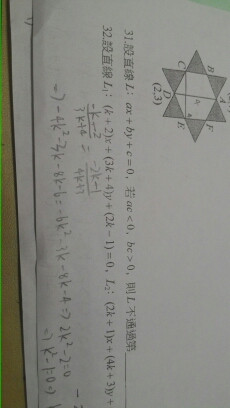 B
A
C
F
D
E
(2,3)
31. 設直線 L：ax + by + c = 0，若 ac < 0，bc > 0，則 L 不通過第
32. 設直線 L₁：(k + 2)x + (3k + 4)y + (2k − 1) = 0，L₂：(2k + 1)x + (4k + 3)y +
-k-2/3k+4 = -2k-1/4k+3
⇒ -4k²-3k-8k-6 = -6k²-3k-8k-4 ⇒ 2k²-2=0
⇒ k²-1=0 ⇒